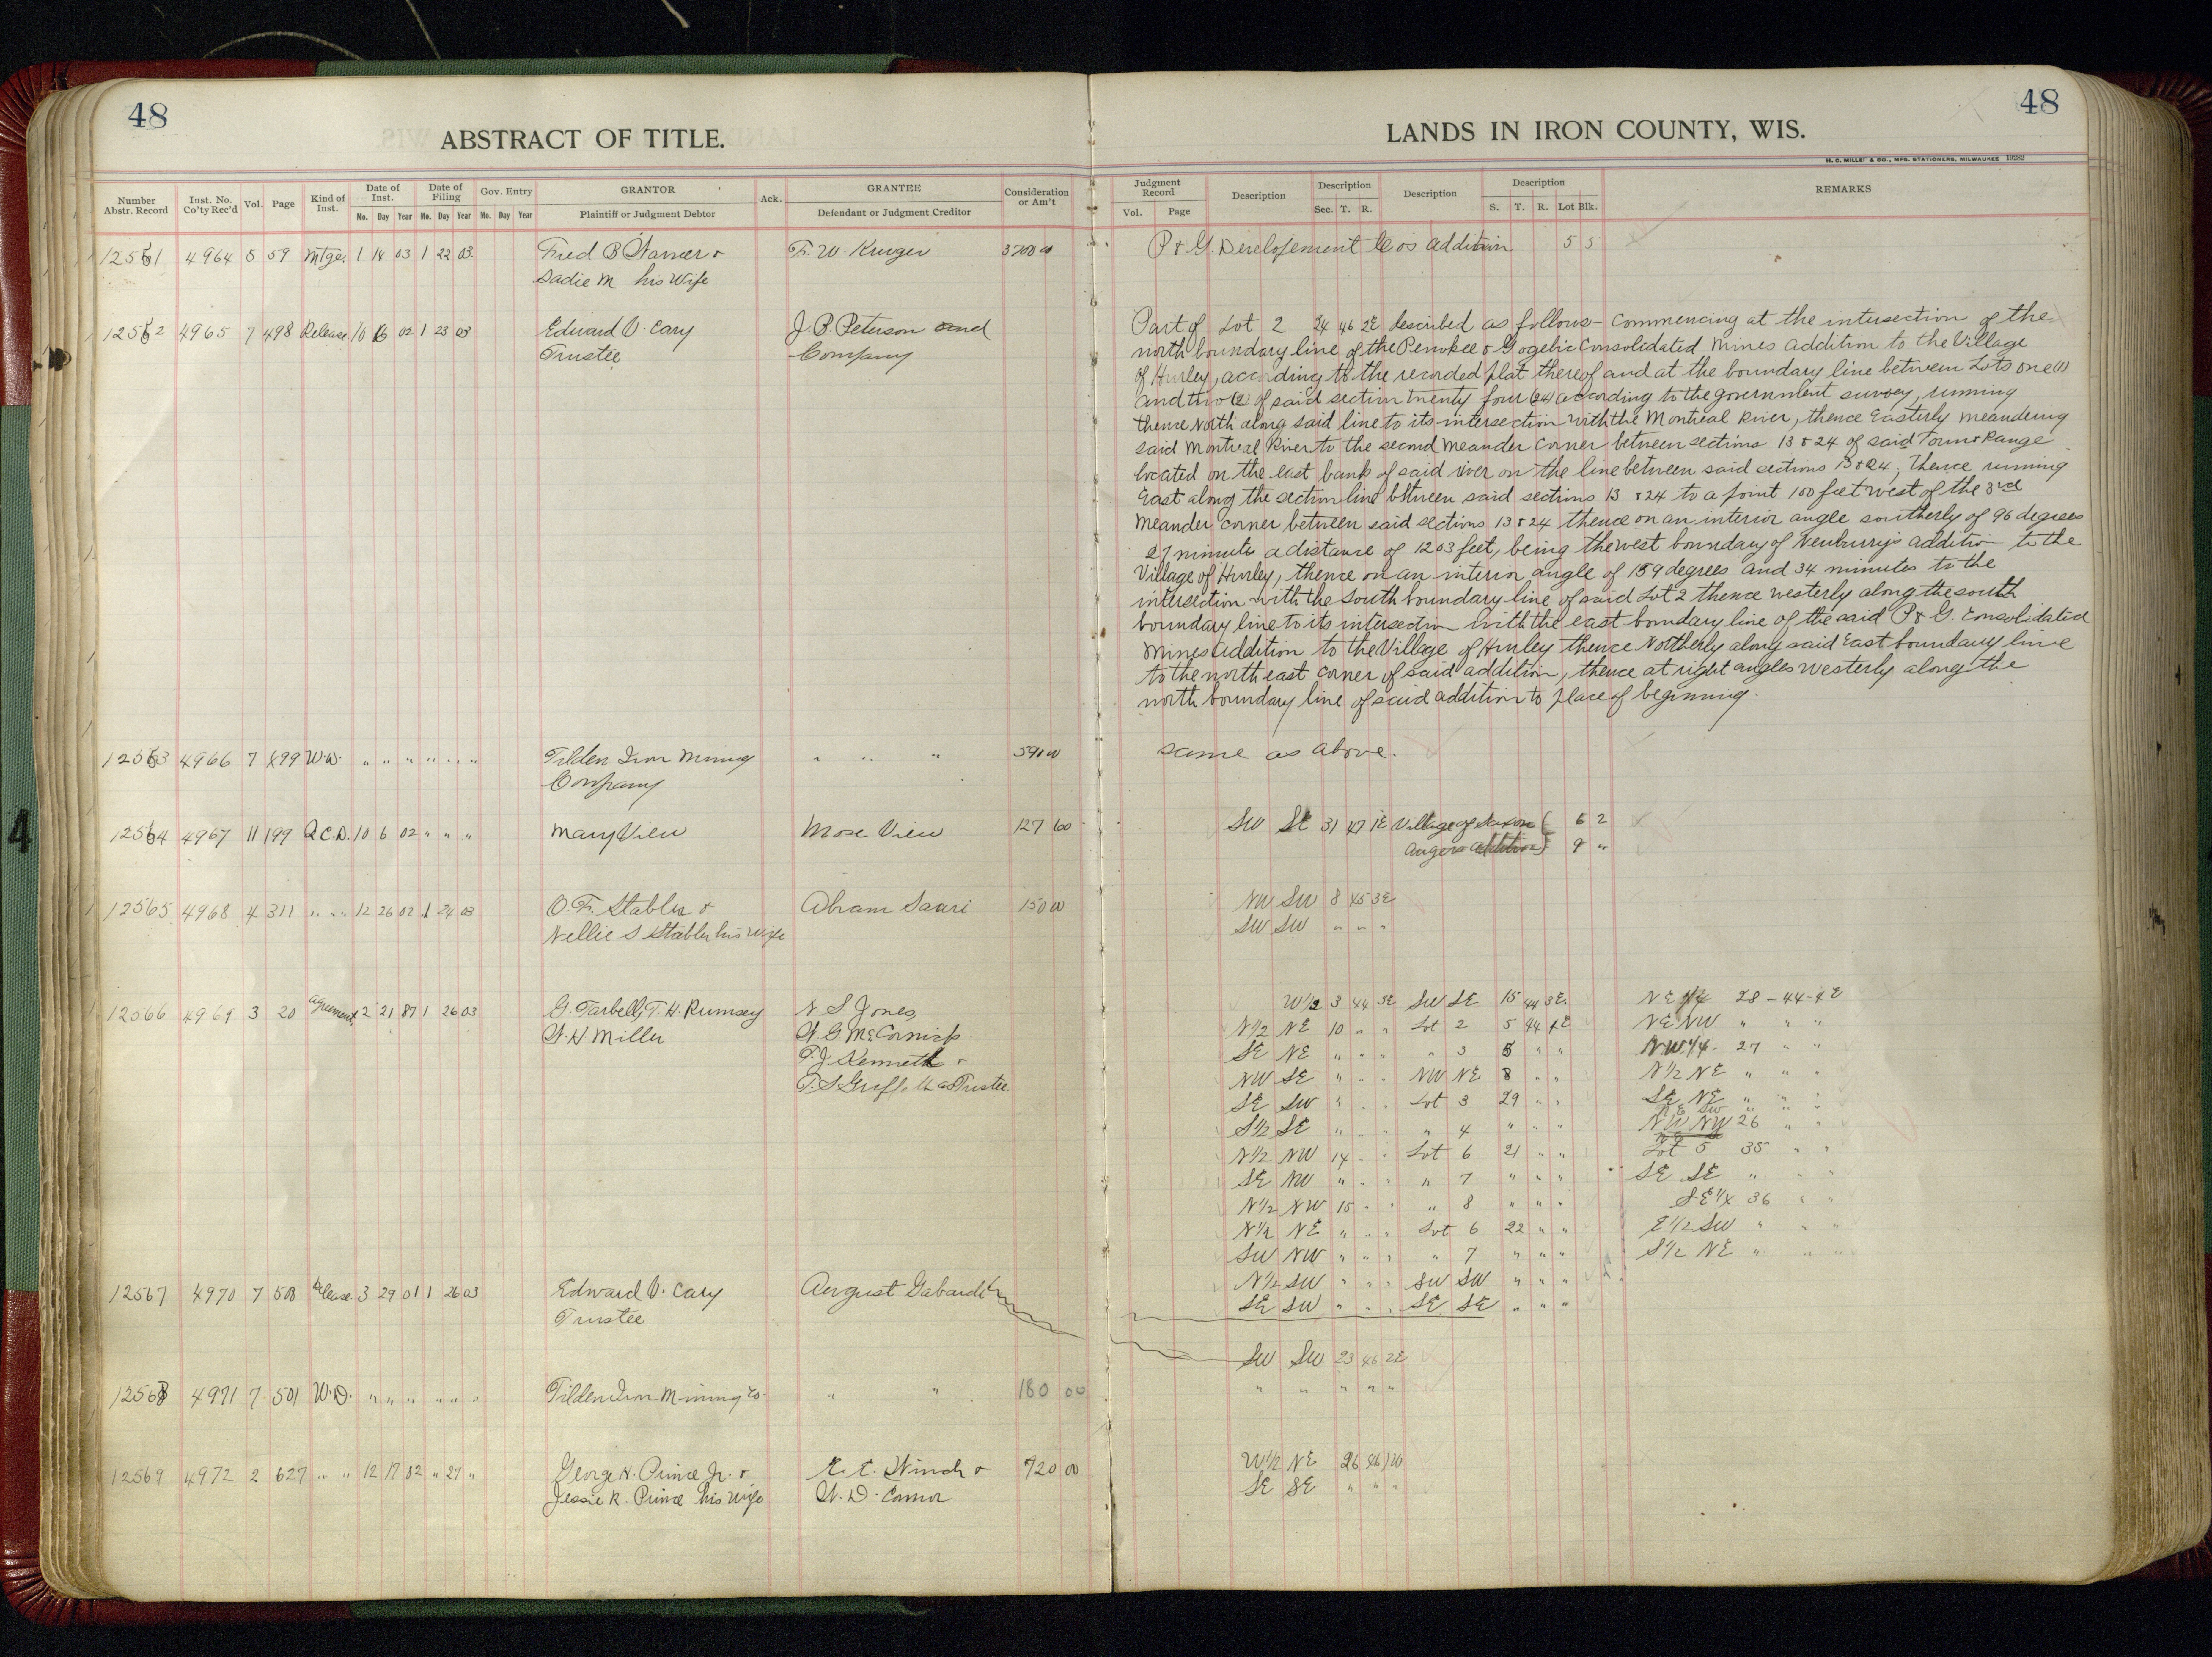 48
ABSTRACT OF TITLE.
Number Abstr. Record
Inst. No. Co'ty Rec'd
Vol.
Page
Kind of Inst.
Date of Inst.
Mo. Day Year
Date of Filing
Mo. Day Year
Gov. Entry
Mo. Day Year
GRANTOR
Plaintiff or Judgment Debtor
Ack.
GRANTEE
Defendant or Judgment Creditor
Consideration or Am't
12561 4964 5 59 Mtge. 1 14 03 1 22 03 Fred B Warner & F. W. Kruger
Sadie M his Wife
12562 4965 7 498 Release 10 16 02 1 23 03 Edward V. Cary J. B. Peterson and
Trustee Company
12563 4966 7 499 W.D. " " " " " " Tilden Iron Mining " " " 591 00
Company
12564 4967 11 199 Q.C.D. 10 6 02 " " " Mary View Mose View 127 60
12565 4968 4 311 " " 12 26 02 1 24 03 O. F. Stabler & Abram Saari 150 00
Nellie S Stabler his wife
12566 4969 3 20 Agreement 2 21 87 1 26 03 G. Tarbell, T. H. Rumsey N. S. Jones,
W. H. Miller W. G. McCornick
T. J. Kenneth &
T. S. Griffith as Trustee
12567 4970 7 500 Release 3 29 01 1 26 03 Edward V. Cary August Gabardi
Trustee
12568 4971 7 501 W.D. " " " " " " Tilden Iron Mining Co. " " 180 00
12569 4972 2 627 " " 12 17 02 " 27 " George H. Prince Jr. & 720 00
Jessie R. Prince his wife W. D. Connor
48
LANDS IN IRON COUNTY, WIS.
H. C. MILLER & CO., MFG. STATIONERS, MILWAUKEE 19282
Judgment Record
Vol. Page
Description
Description
Sec. T. R.
Description
Description
S. T. R. Lot Blk.
REMARKS
P & G. Developement Co os addition 5 5
Part of Lot 2 24 46 2E described as follows - Commencing at the intersection of the
north boundary line of the Penokee & Gogebic Consolidated Mines addition to the Village
of Hurley, according to the recorded plat thereof and at the boundary line between Lots one (1)
and two (2) of said section twenty four (24) according to the government survey, running
thence North along said line to its intersection with the Montreal River, thence Easterly meandering
said Montreal River to the second meander corner between sections 13 & 24 of said Town & Range
located on the east bank of said river on the line between said sections 13 & 24; thence running
East along the section line between said sections 13 & 24 to a point 100 feet west of the 3rd
Meander corner between said sections 13 & 24 thence on an interior angle southerly of 96 degrees
27 minutes a distance of 1203 feet, being the west boundary of Newburry's addition to the
Village of Hurley, thence on an interior angle of 159 degrees and 34 minutes to the
intersection with the South boundary line of said Lot 2 thence westerly along the south
boundary line to its intersection with the east boundary line of the said P & G. Consolidated
Mines addition to the Village of Hurley thence Northerly along said East boundary line
to the north east corner of said addition, thence at right angles westerly along the
north boundary line of said addition to place of beginning.
same as above.
SW SE 31 47 1E Village of Saxon 6 2
Angers addition 9 "
NW SW 8 45 3E
SW SW " " "
W 1/2 3 44 3E SW SE 15 44 3E NE 1/4 28 - 44 - 4E
N 1/2 NE 10 " " Lot 2 5 44 4E NE NW " " "
SE NE " " " " 3 5 " " NW 1/4 27 " "
NW SE " " " NW NE 8 " " N 1/2 NE " " "
SE SW " " " Lot 3 29 " " SE NE " " "
NE SW " " "
S 1/2 SE " " " " 4 " " " NW NW 26 " "
N 1/2 NW 14 " " Lot 6 21 " " Lot 5 35 " "
SE NW " " " " 7 " " " SE SE " " "
N 1/2 NW 15 " " " 8 " " " SE 1/4 36 " "
N 1/2 NE " " " Lot 6 22 " " E 1/2 SW " " "
SW NW " " " " 7 " " " S 1/2 NE " " "
N 1/2 SW " " " SW SW " " "
SE SW " " " SE SE " " "
SW SW 23 46 2E
" " " " "
W 1/2 NE 26 46 1W
SE SE " " "
4